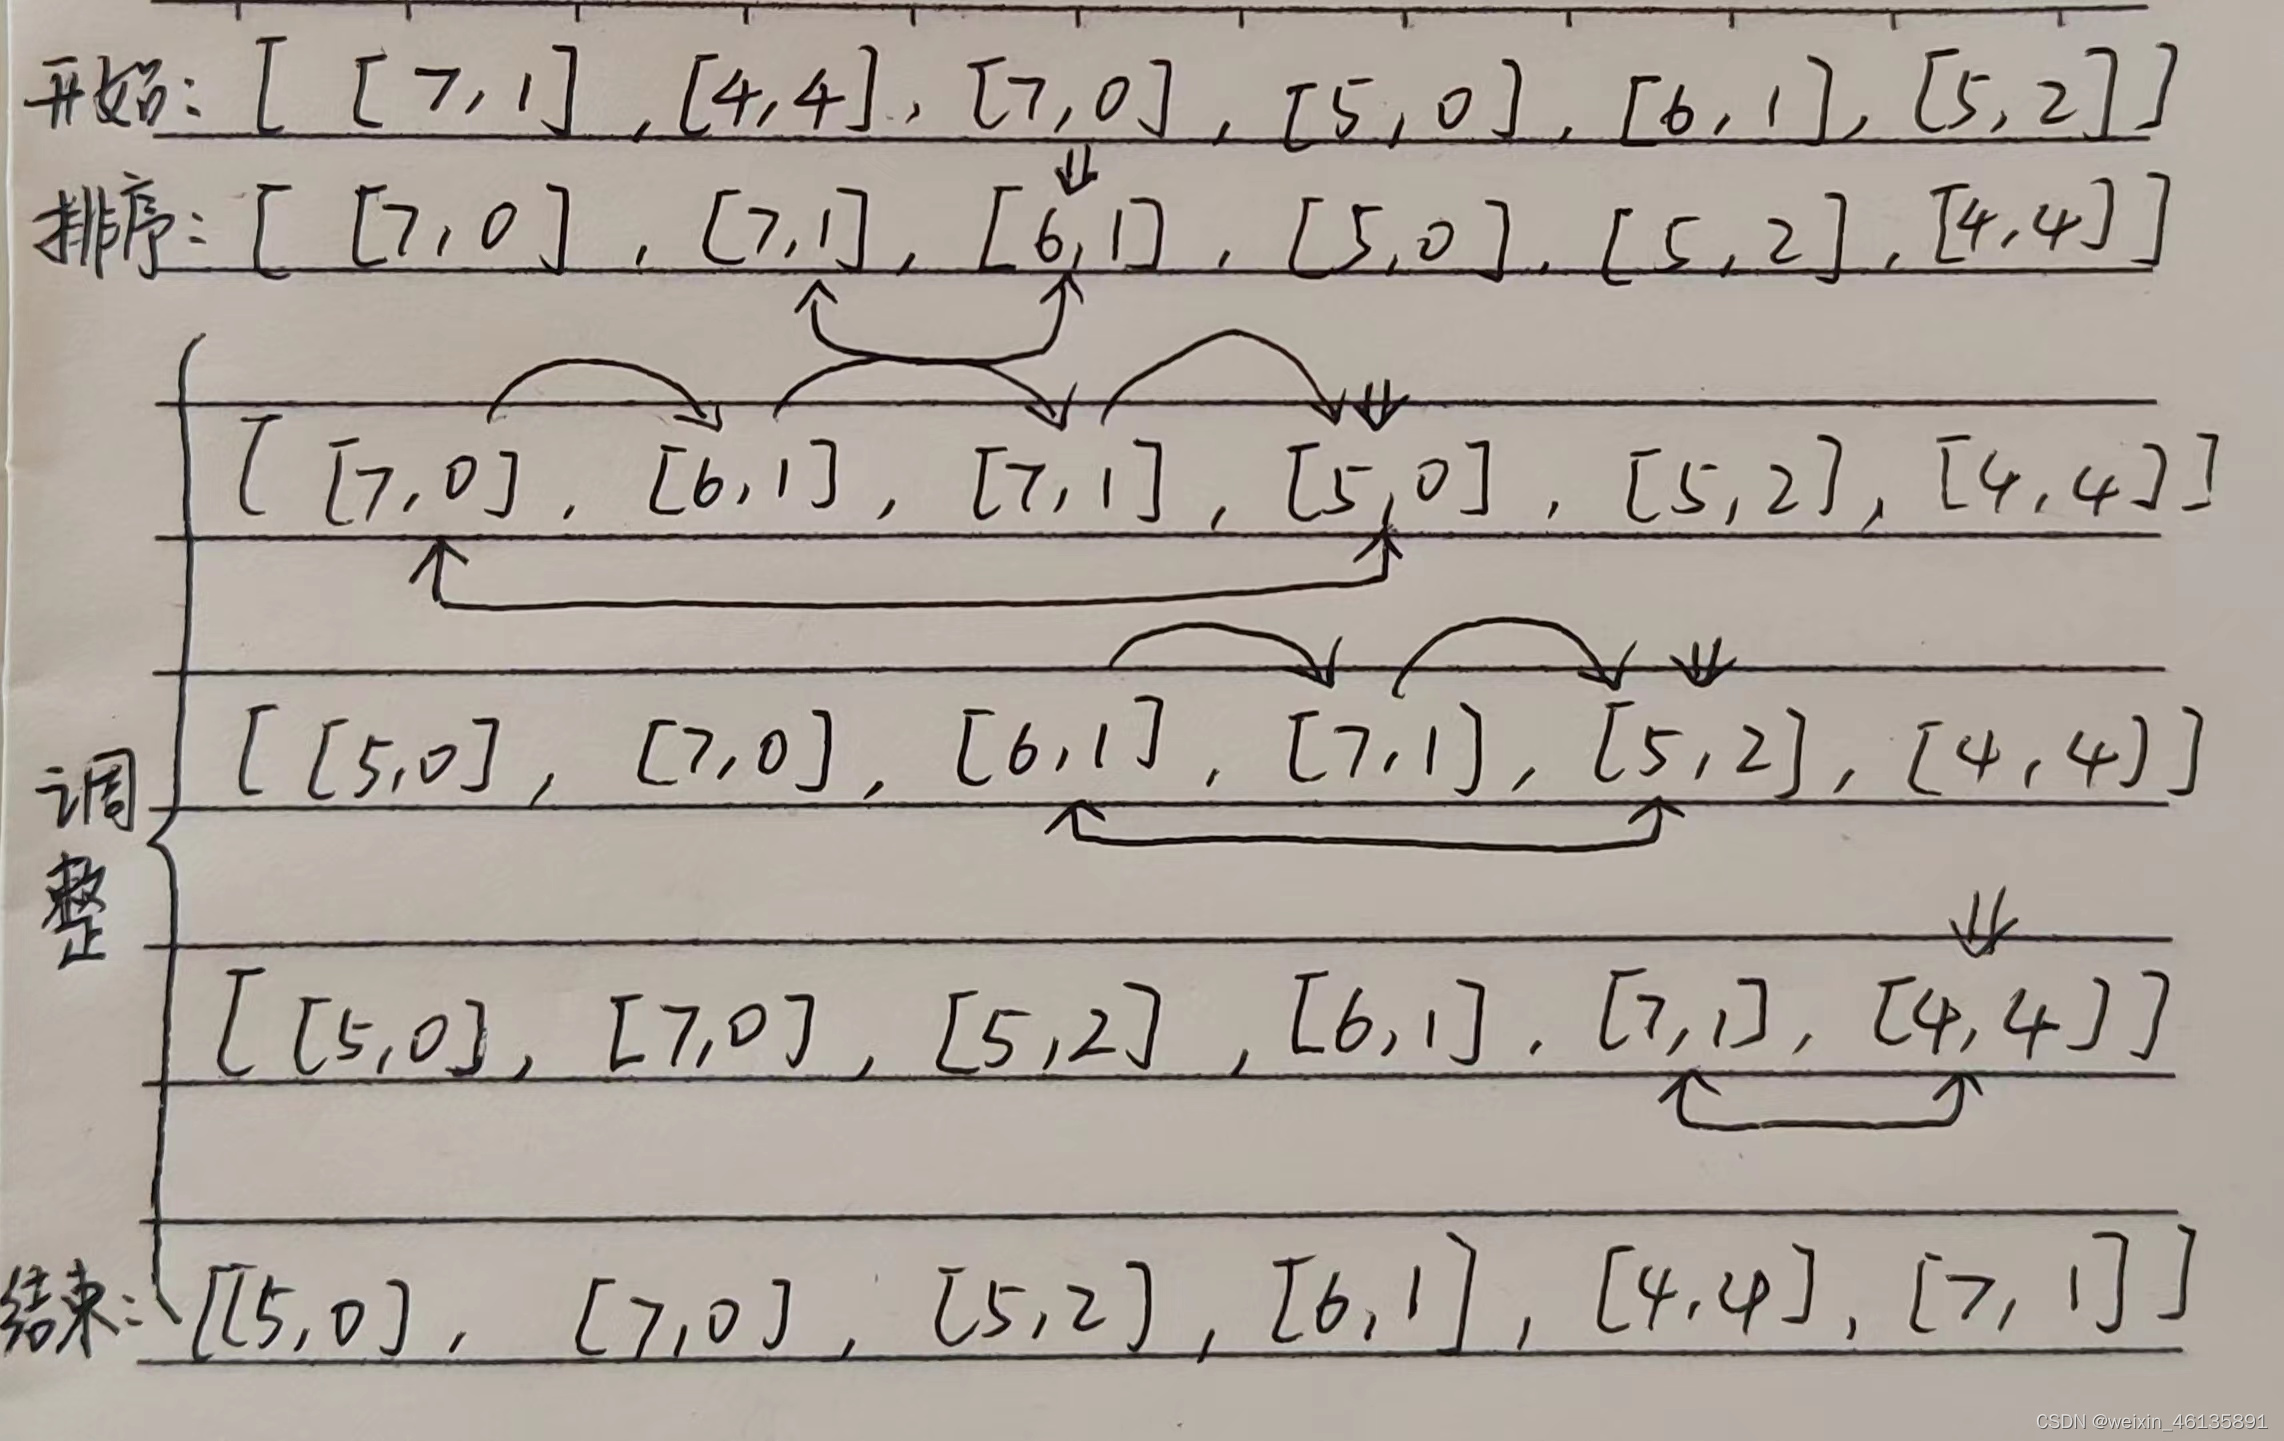 开始: [ [7,1], [4,4], [7,0], [5,0], [6,1], [5,2] ]
排序: [ [7,0], [7,1], [6,1], [5,0], [5,2], [4,4] ]
[ [7,0], [6,1], [7,1], [5,0], [5,2], [4,4] ]
[ [5,0], [7,0], [6,1], [7,1], [5,2], [4,4] ]
调整
[ [5,0], [7,0], [5,2], [6,1], [7,1], [4,4] ]
结束: [[5,0], [7,0], [5,2], [6,1], [4,4], [7,1] ]
CSDN @weixin_46135891